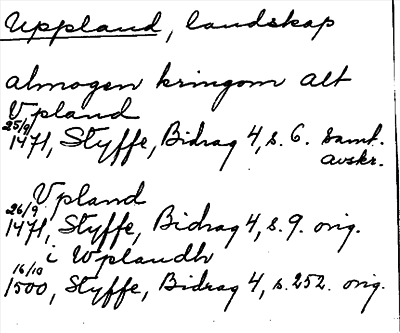 Uppland, landskap
almogen kringom alt
Vpland
25/9
1471, Styffe, Bidrag 4, s. 6. samt.
avskr.
Vpland
26/9
1471, Styffe, Bidrag 4, s. 9. orig.
i Wplandh
16/10
1500, Styffe, Bidrag 4, s. 252. orig.